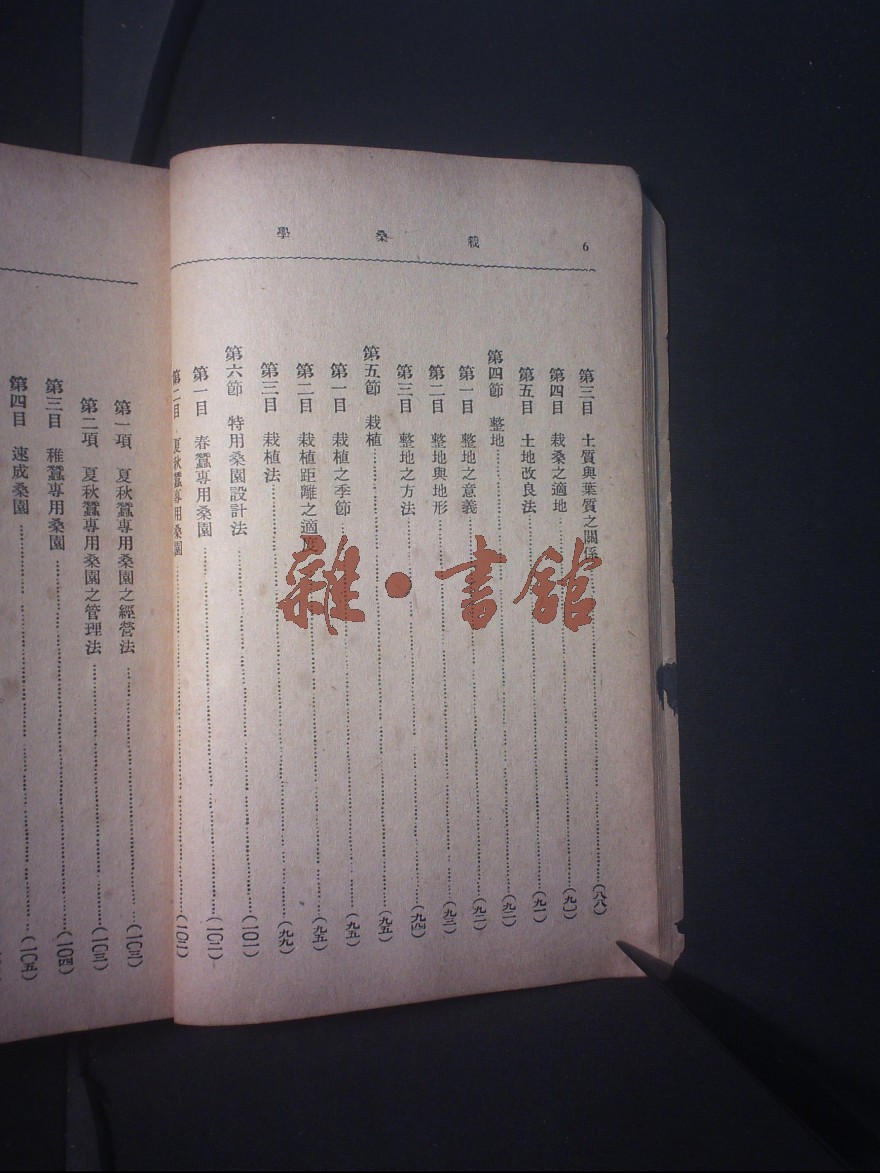 6 栽桑學
第三目 土質與葉質之關係……(八八)
第四目 栽桑之適地……(九〇)
第五目 土地改良法……(九一)
第四節 整地……(九二)
第一目 整地之意義……(九二)
第二目 整地與地形……(九三)
第三目 整地之方法……(九四)
第五節 栽植……(九五)
第一目 栽植之季節……(九五)
第二目 栽植距離之適度……(九五)
第三目 栽植法……(九九)
第六節 特用桑園設計法……(一〇一)
第一目 春蠶專用桑園……(一〇一)
第二目 夏秋蠶專用桑園……(一〇二)
第一項 夏秋蠶專用桑園之經營法……(一〇三)
第二項 夏秋蠶專用桑園之管理法……(一〇三)
第三目 稚蠶專用桑園……(一〇四)
第四目 速成桑園……(一〇五)
雜·書館